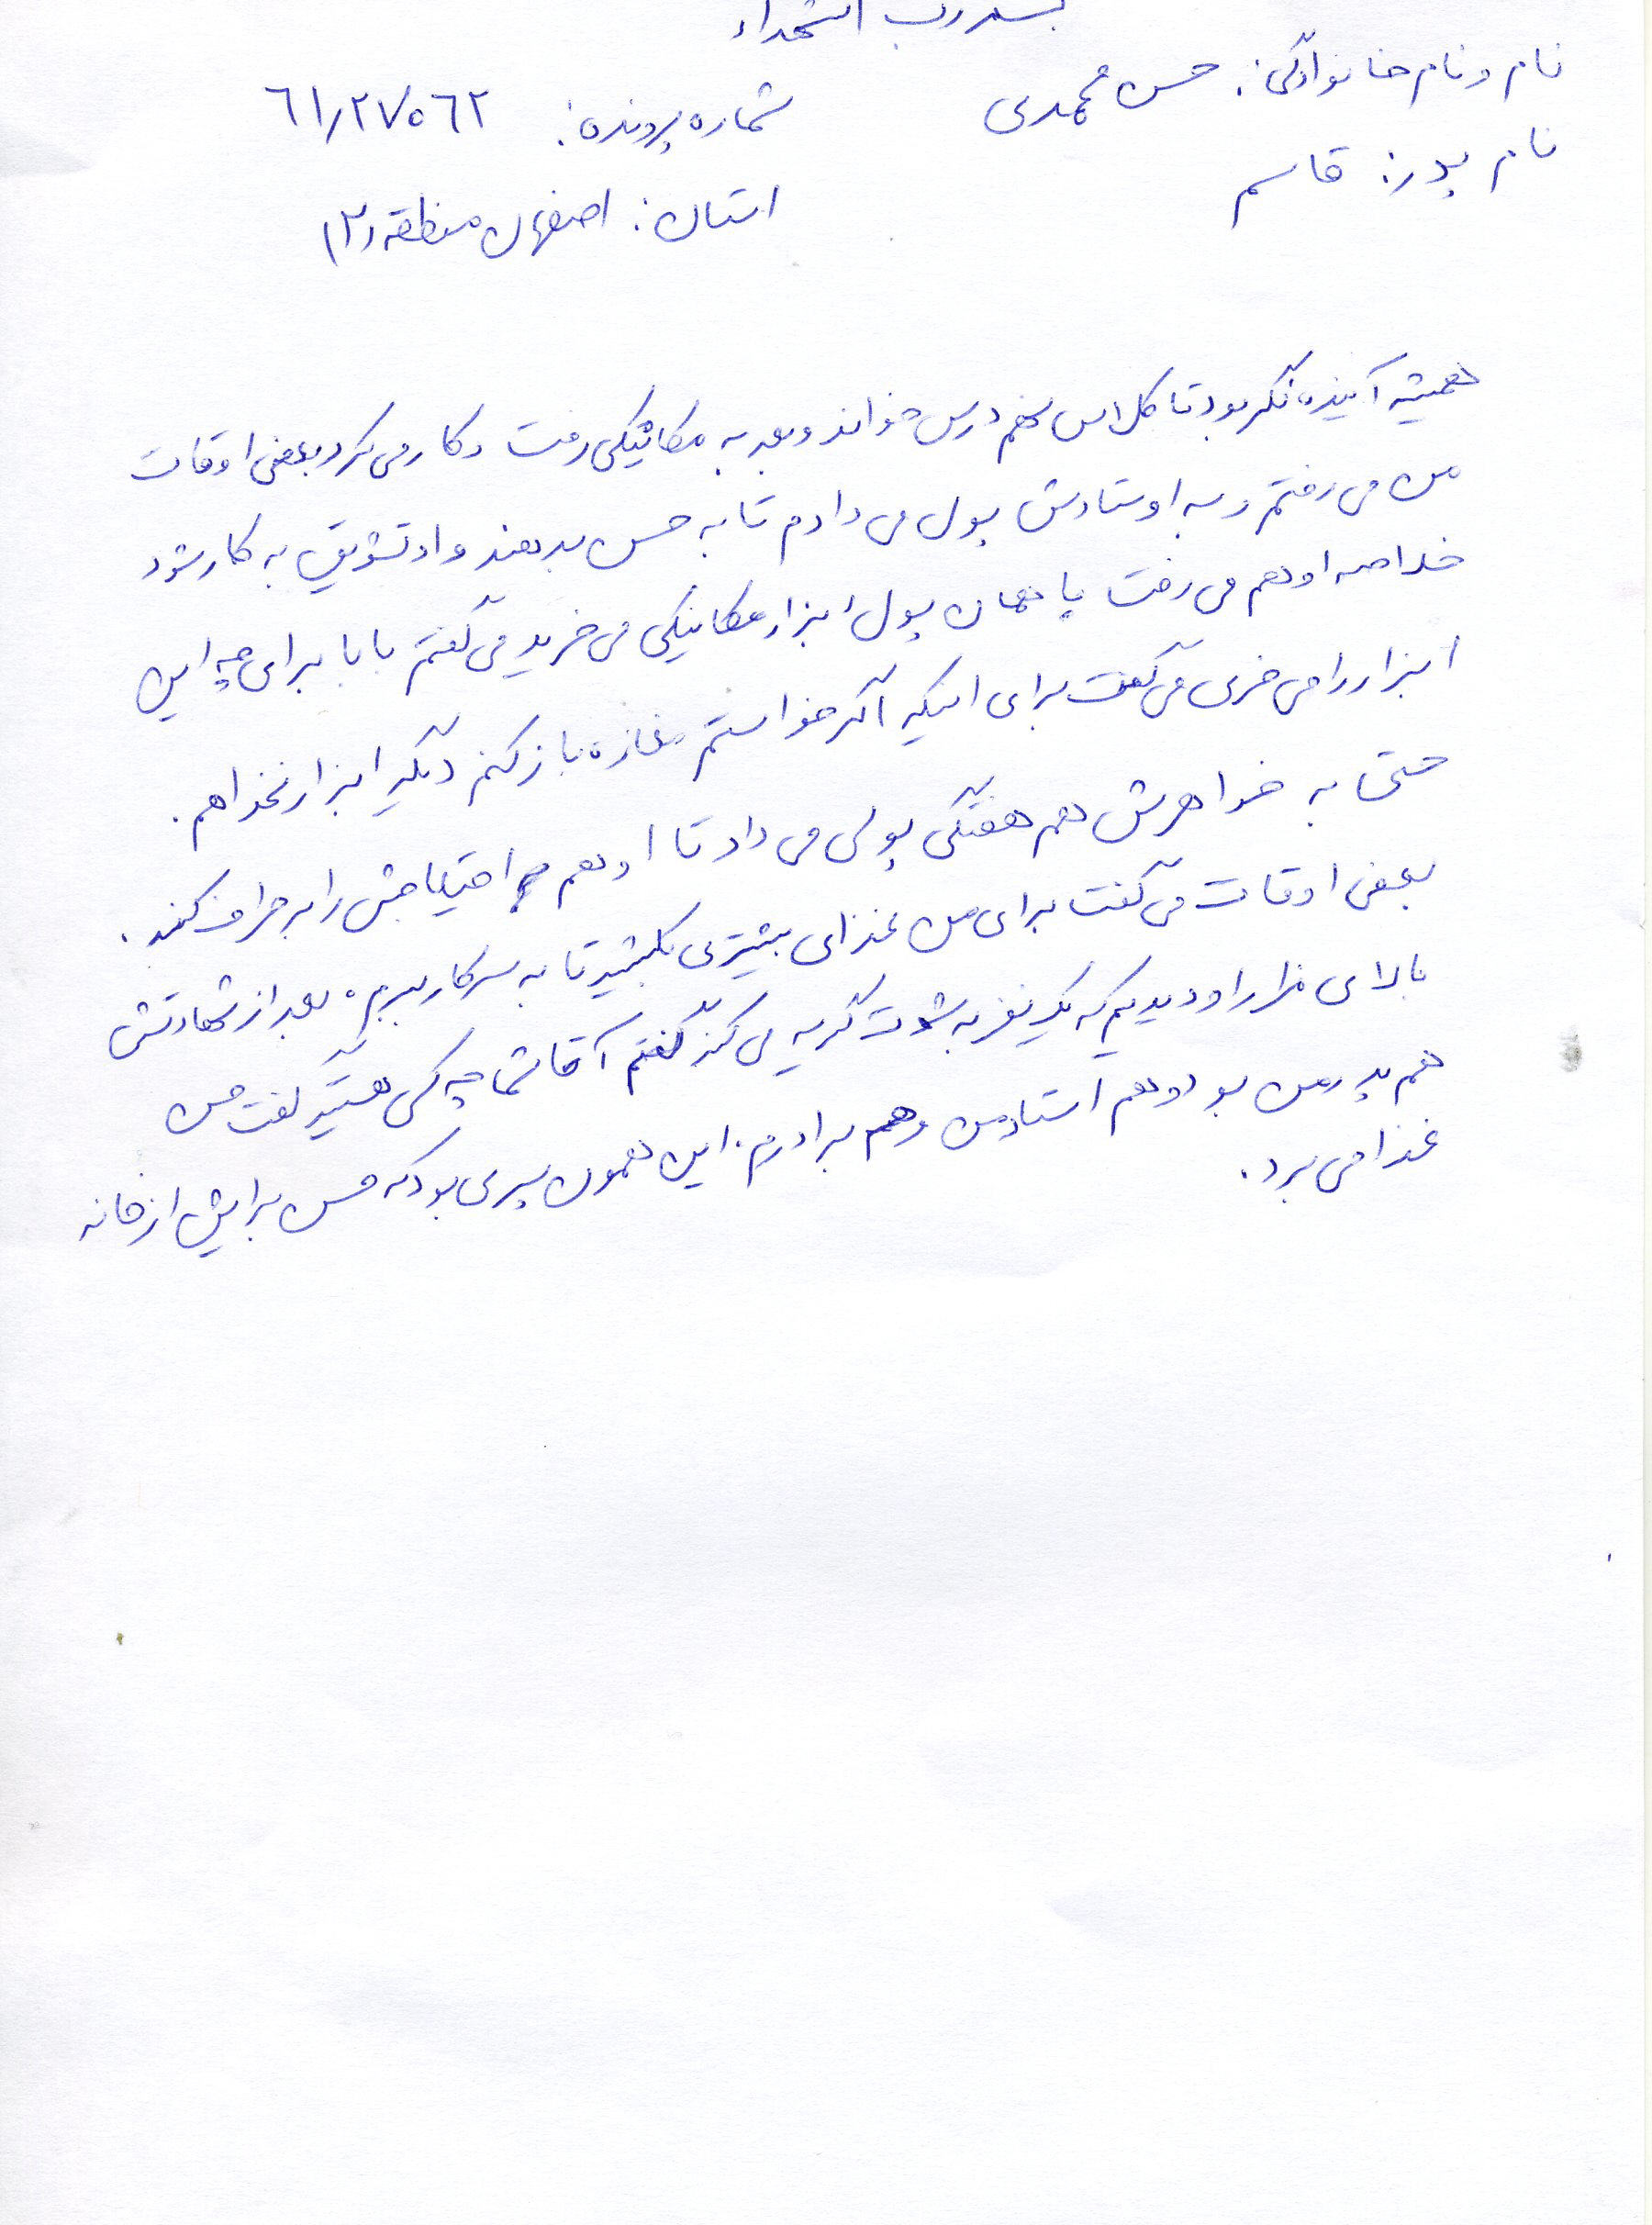 بسم رب الشهداء
نام و نام خانوادگی: حسن محمدی
شماره پرونده: ٦١/٢٧٥٦٢
نام پدر: قاسم
استان: اصفهان منطقه (٢)
همیشه آینده نگر بود تا کلاس پنجم درس خواند و بعد به مکانیکی رفت و کار می کرد بعضی اوقات
من می رفتم و به اوستادش پول می دادم تا به حسن بدهند و او تشویق به کار شود
خلاصه او هم می رفت با همان پول ابزار مکانیکی می خرید می گفتم بابا برای چه این
ابزار را می خری می گفت برای اینکه اگر خواستم مغازه باز کنم دیگر ابزار نخواهم.
حتی به خواهرش هم هفتگی پولی می داد تا او هم احتیاجش را برطرف کند.
بعضی اوقات می گفت برای من غذای بیشتری بکشید تا به سرکار ببرم. بعد از شهادتش
بالای مزار او دیدیم که یک نفر به شدت گریه می کند گفتم آقا شما چه کسی هستید گفت حسن
هم پدر من بود و هم استاد من و هم برادرم. این همون پسری بود که حسن برایش از خانه
غذا می برد.